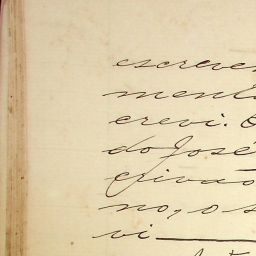 escreve
ment
crevi. O
do José
crivão
no, o s
vi